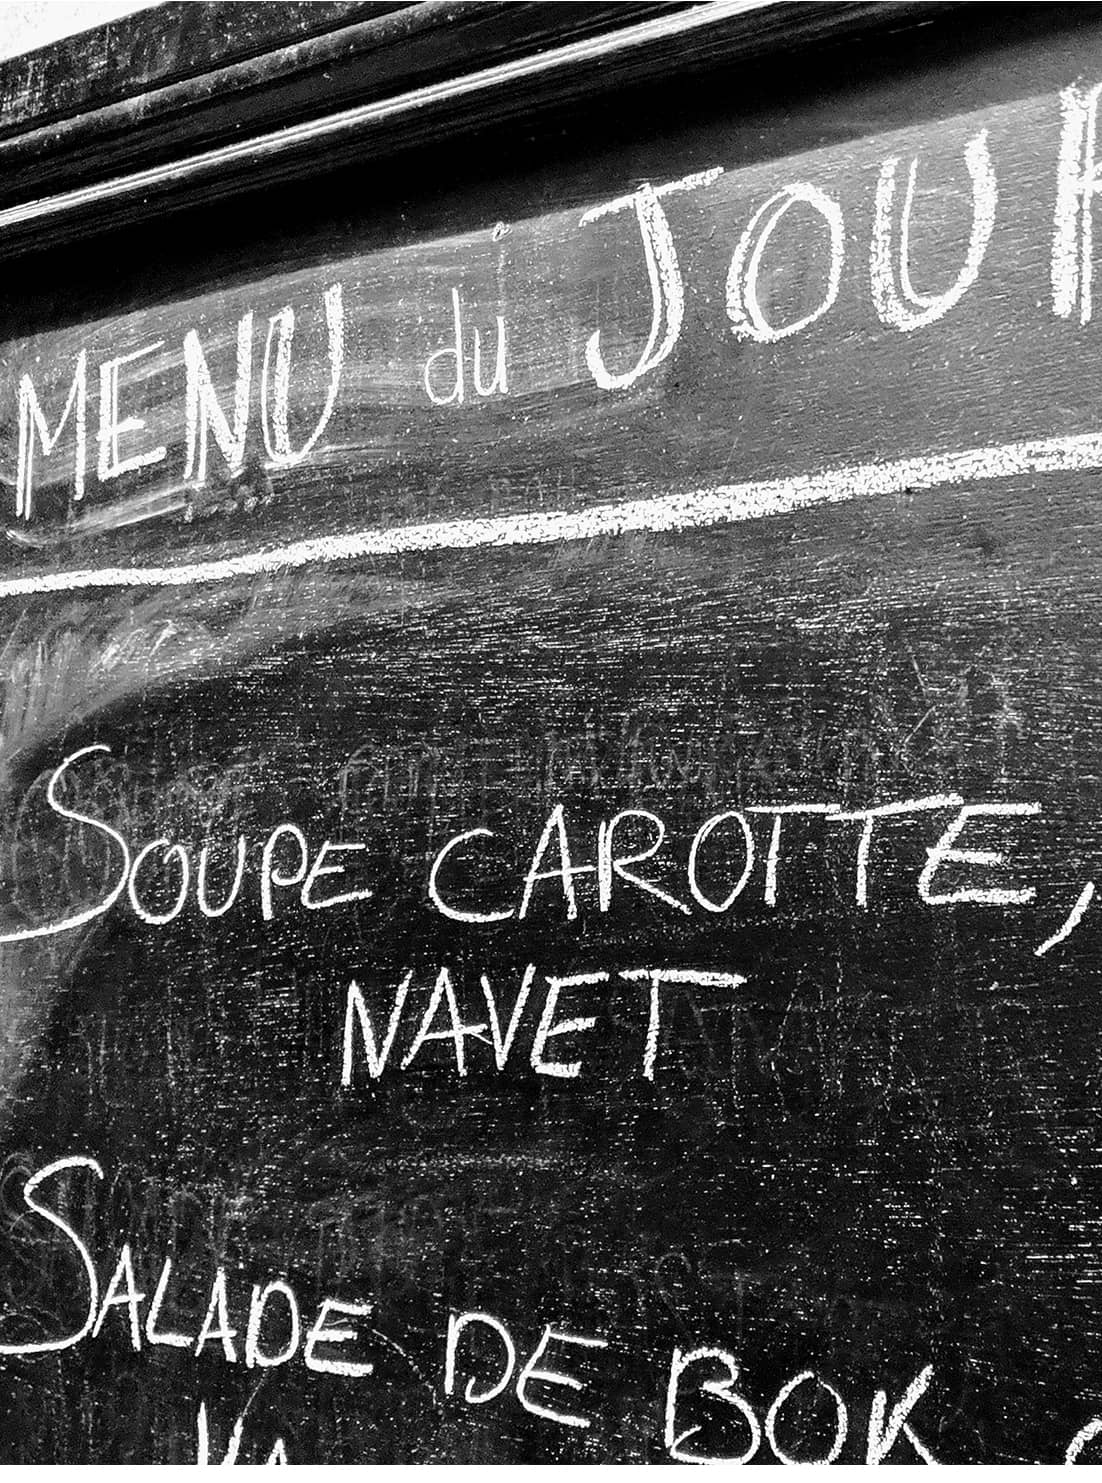 MENU du JOUR
SOUPE CAROTTE,
NAVET
SALADE DE BOK